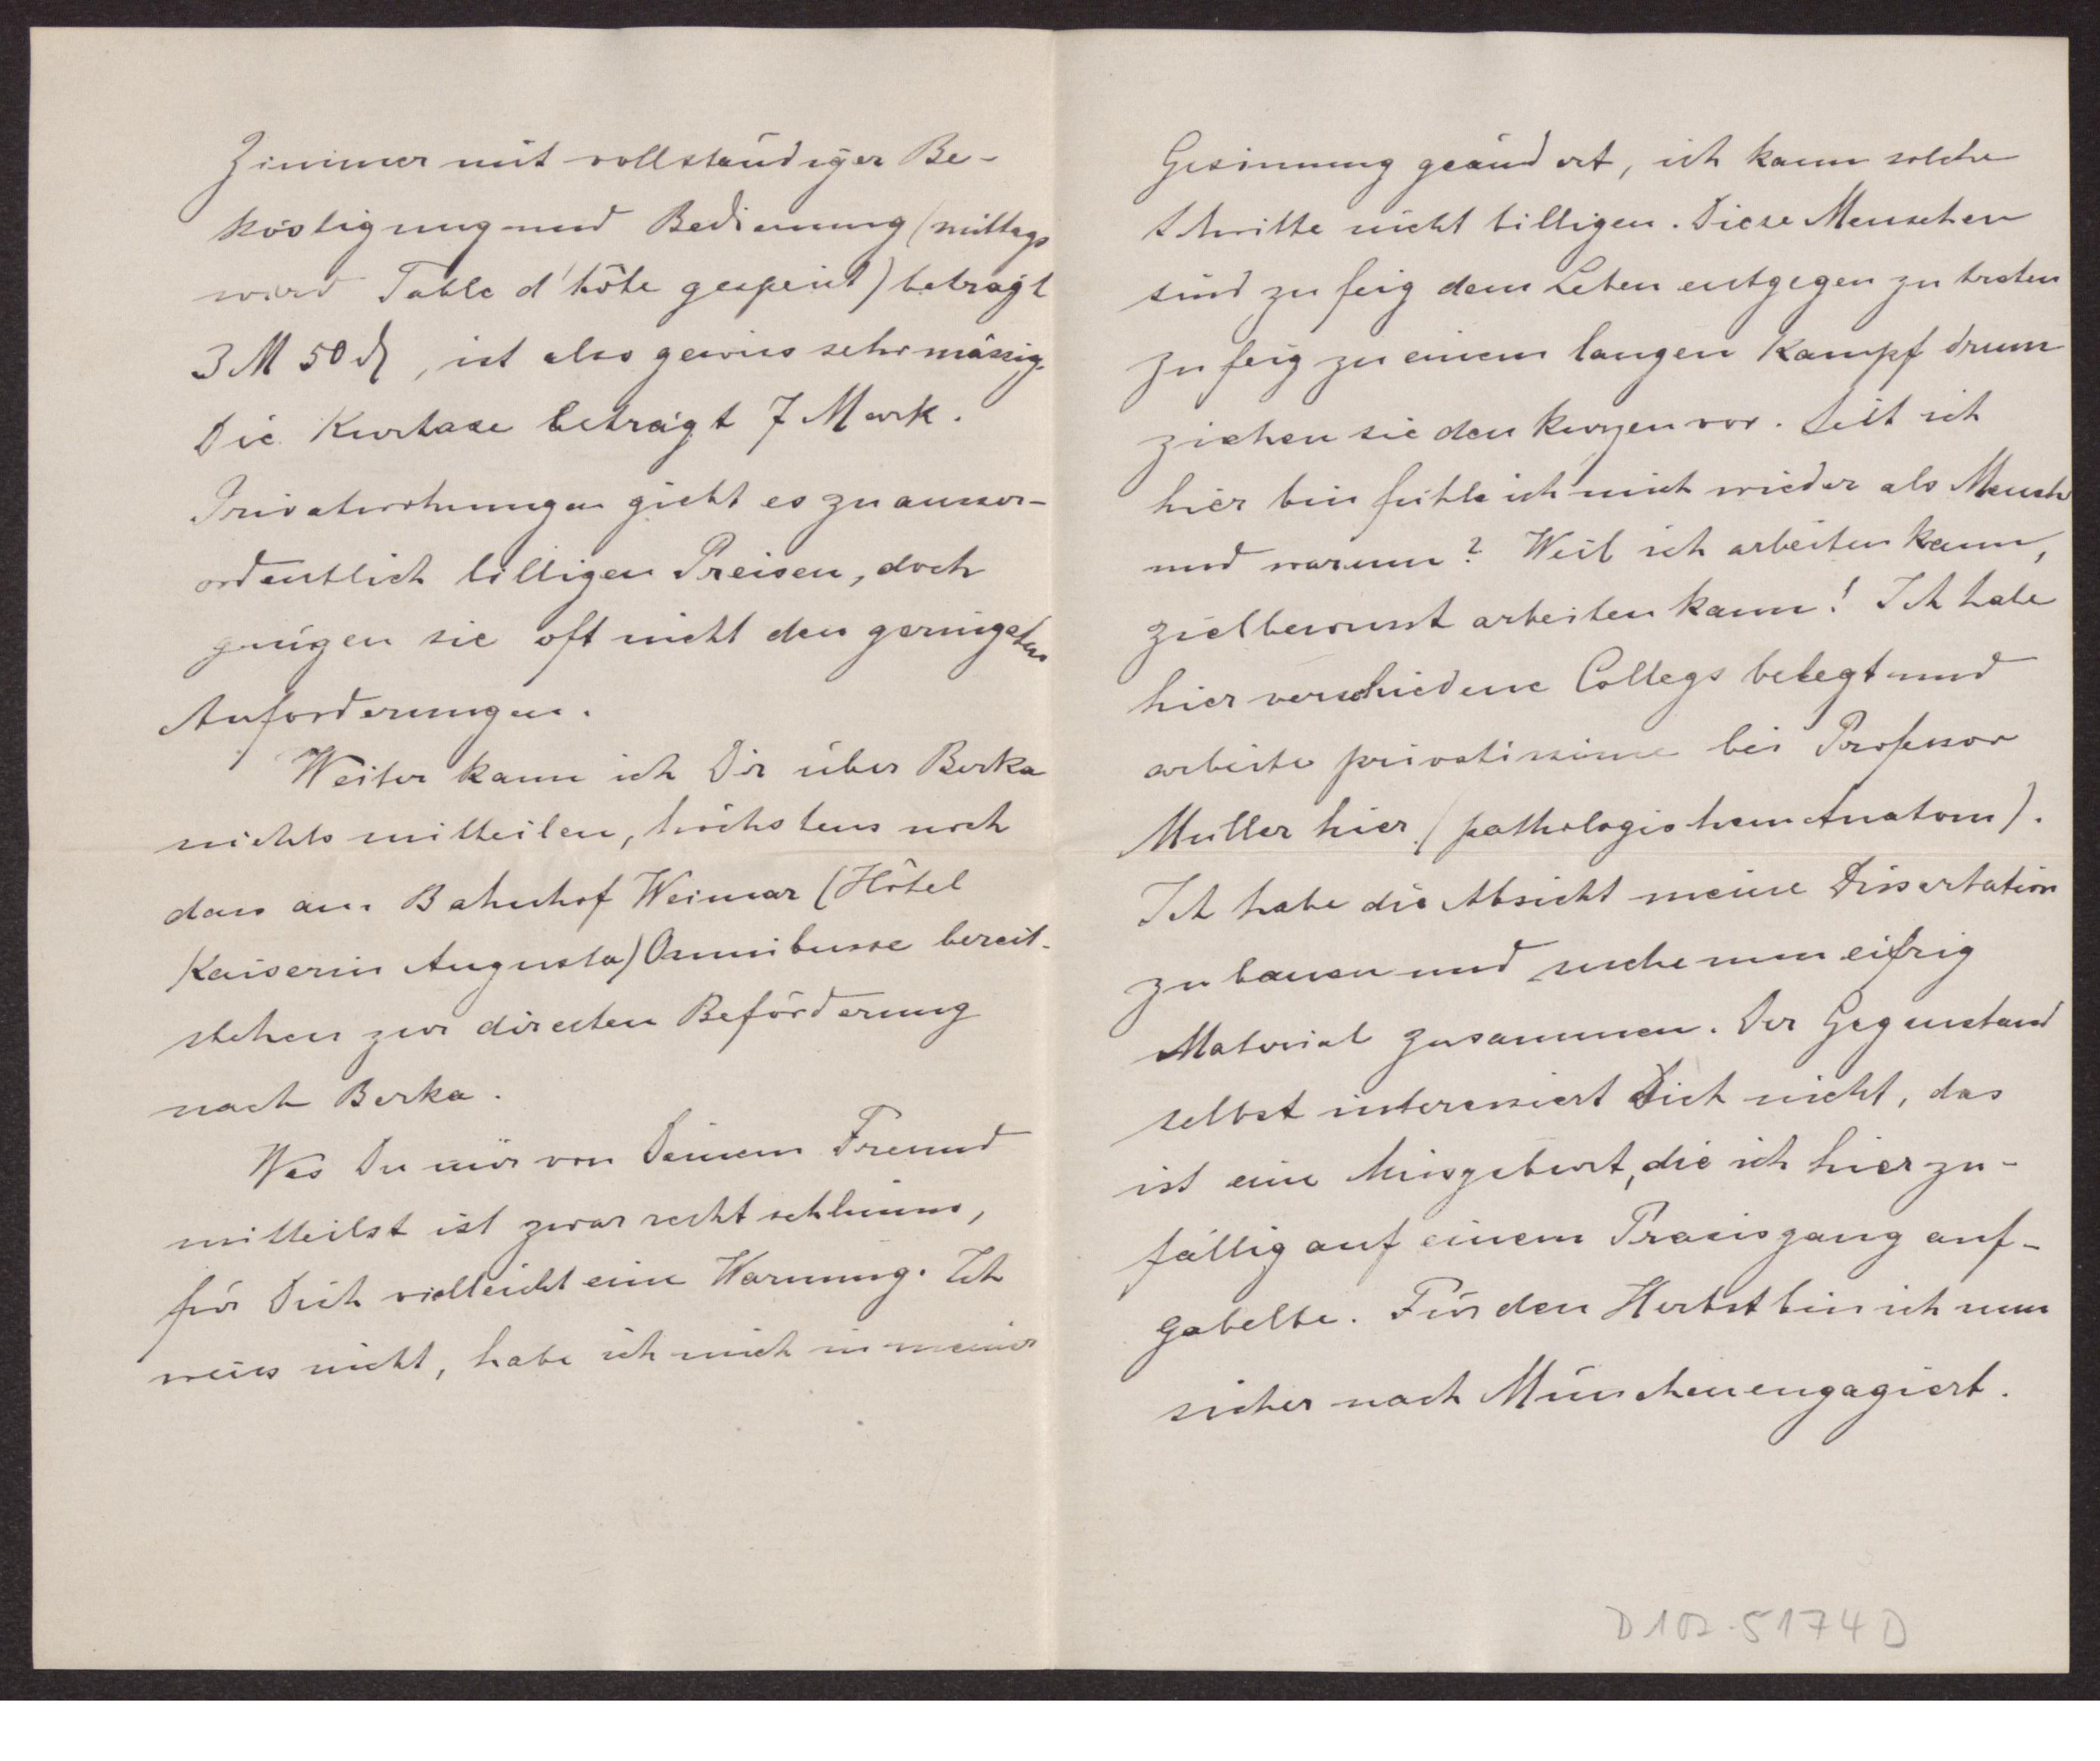 Zimmer mit vollständiger Be-
köstigung und Bedienung (mittags
wird Table d'hôte gespeist) beträgt
3 M 50 ₰, ist also gewiss sehr mässig.
Die Kurtaxe beträgt 7 Mark.
Privatwohnungen giebt es zu ausser-
ordentlich billigen Preisen, doch
genügen sie oft nicht den geringsten
Anforderungen.
Weiter kann ich Dir über Berka
nichts mitteilen, höchstens noch
dass am Bahnhof Weimar (Hôtel
Kaiserin Augusta) Omnibusse bereit-
stehen zur directen Beförderung
nach Berka.
Was Du mir von Deinem Freund
mitteilst ist zwar recht schlimm,
für Dich vielleicht eine Warnung. Ich
weiss nicht, habe ich mich in meiner
Gesinnung geändert, ich kann solche
Schritte nicht billigen. Diese Menschen
sind zu feig dem Leben entgegen zu treten
zu feig zu einem langen Kampf drum
ziehen sie den kurzen vor. Seit ich
hier bin fühle ich mich wieder als Mensch
und warum? Weil ich arbeiten kann,
zielbewusst arbeiten kann! Ich habe
hier verschiedene Collegs belegt und
arbeite privatissime bei Professor
Müller hier (pathologischem Anatom).
Ich habe die Absicht meine Dissertation
zu bauen und suche nun eifrig
Material zusammen. Der Gegenstand
selbst interessiert Dich nicht, das
ist eine Missgeburt, die ich hier zu-
fällig auf einem Praxisgang auf-
gabelte. Für den Herbst bin ich nun
sicher nach München engagiert.
D102.5174 D